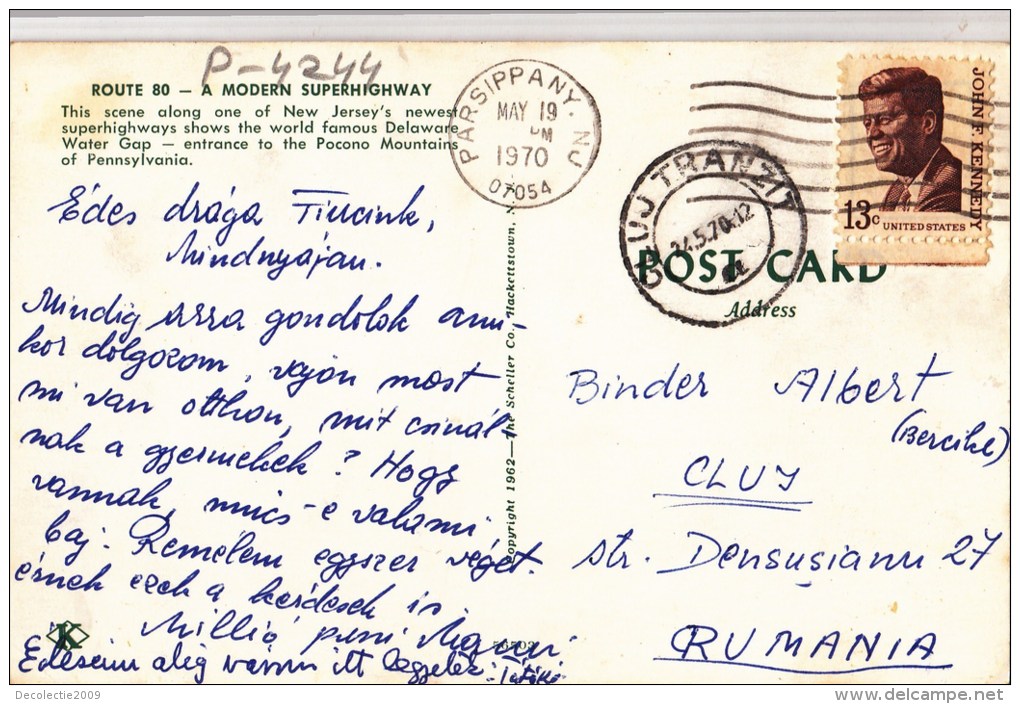 P-4244
ROUTE 80 — A MODERN SUPERHIGHWAY
This scene along one of New Jersey's newest
superhighways shows the world famous Delaware
Water Gap — entrance to the Pocono Mountains
of Pennsylvania.
PARSIPPANY, NJ
MAY 19
PM
1970
07054
CLUJ TRANZIT
24.5.70.12
JOHN F. KENNEDY
13c UNITED STATES
POST CARD
Address
Édes drága
Mindnyájan.
Mindig arra gondolok ami-
kor dolgozom, vajon most
mi van otthon, mit csinál-
nak a gyermekek? Hogy
vannak, nincs-e valami
baj. Remelem egyszer véget
érnek ezek a kérdések is.
Millió puszi
Edeseim alig várom itt legyetek
Copyright 1962 — The Scheller Co., Hackettstown, N.
K
Binder Albert
CLUJ
str. Densuşianu 27
RUMANIA
Decolectie2009
delcampe.net